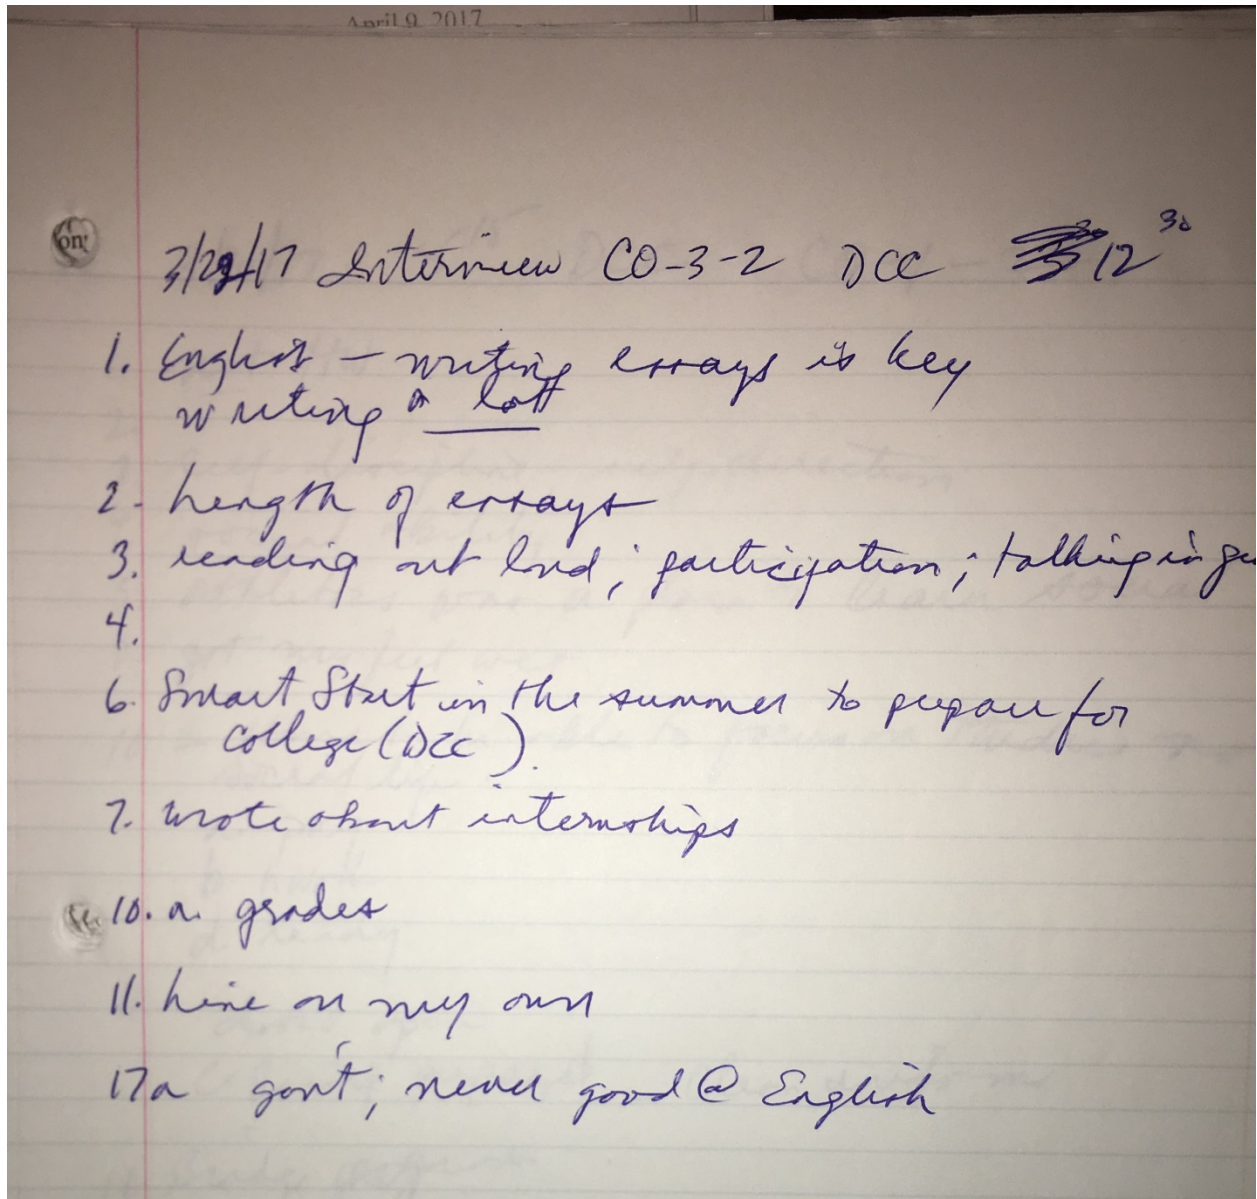 April 9, 2017
on!
3/29/17 Interview CO-3-2 DCC 12 30
1. English – writing essays is key
writing a lott
2. Length of essays
3. reading out loud; participation; talking in
4.
6. Smart Start in the summer to prepare for
college (DCC).
7. wrote about internships
10. a. grades
11. Live on my own
17a gov't; never good @ English